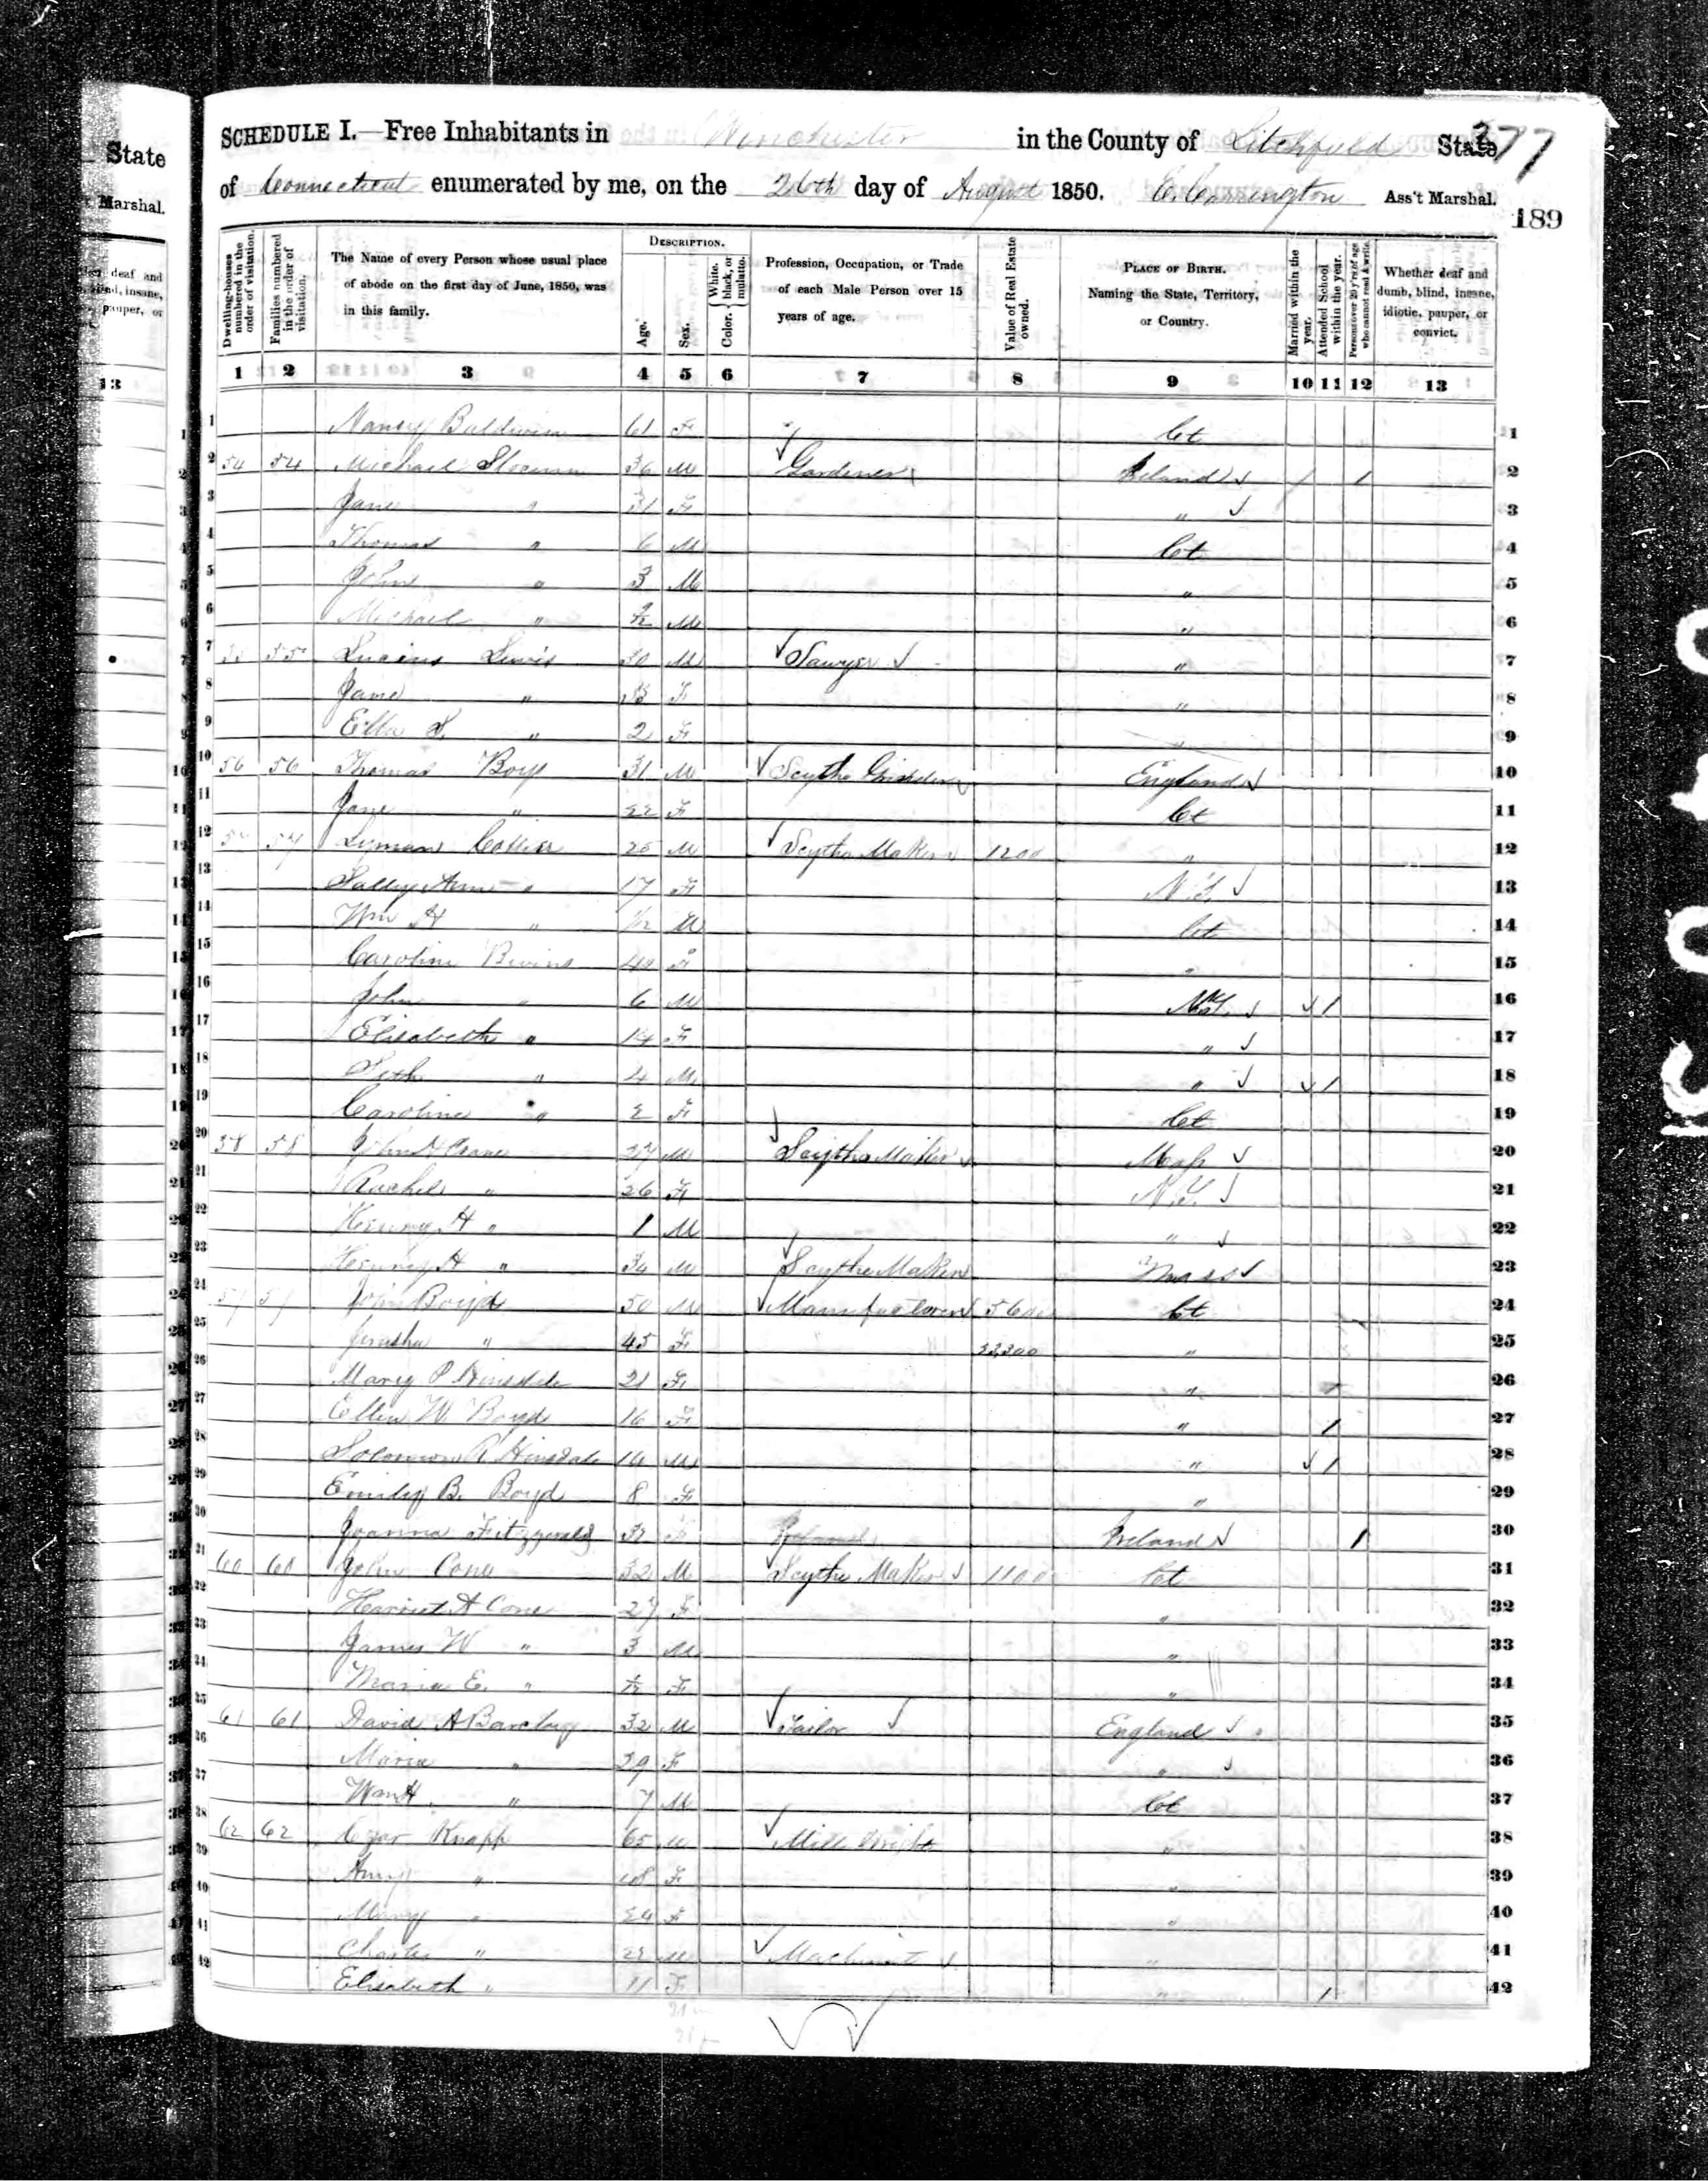 State
Marshal.
deaf and
blind, insane,
pauper, or
13
377
SCHEDULE I.—Free Inhabitants in Winchester in the County of Litchfield State
of Connecticut enumerated by me, on the 26th day of August 1850. E. Carrington Ass't Marshal.
189
Dwelling-houses numbered in the order of visitation.
Families numbered in the order of visitation.
The Name of every Person whose usual place of abode on the first day of June, 1850, was in this family.
DESCRIPTION.
Age.
Sex.
Color. { White, black, or mulatto.
Profession, Occupation, or Trade of each Male Person over 15 years of age.
Value of Real Estate owned.
PLACE OF BIRTH. Naming the State, Territory, or Country.
Married within the year.
Attended School within the year.
Persons over 20 y'rs of age who cannot read & write.
Whether deaf and dumb, blind, insane, idiotic, pauper, or convict.
1 2 3 4 5 6 7 8 9 10 11 12 13
1 Nancy Baldwin 61 F " Ct 1
2 54 54 Michael 36 M Gardener Ireland / 1 2
3 Jane " 31 F " 3
4 Thomas " 6 M Ct 4
5 John " 3 M " 5
6 Michael " M " 6
7 55 Lucius Lewis 30 M Sawyer " 7
8 Jane " F " 8
9 Ella S. " 2 F " 9
10 56 56 Thomas Boys 31 M Scythe Grinder England 10
11 Jane " 22 F Ct 11
12 57 57 Lyman Collier M Scythe Maker 1200 " 12
13 Sally Ann " 17 F N.Y. 13
14 Wm H " M Ct 14
15 Caroline Bivins F " 15
16 John " 6 M 1 16
17 Elisabeth " 14 F " 17
18 Seth " 4 M " 1 18
19 Caroline " 2 F Ct 19
20 58 58 John H Crane 27 M Scythe Maker Mass 20
21 Rachel " 26 F N.Y. 21
22 Henry H " 1 M " 22
23 Henry H " 34 M Scythe Maker Mass 23
24 John Boyd 50 M Manufacturer Ct 24
25 Jerusha " 45 F " 25
26 Mary P Hinsdale 21 F " 26
27 Ellen W Boyd 16 F " 1 27
28 Solomon R Hinsdale M " 1 28
29 Emily B. Boyd 8 F " 29
30 Joanna Fitzgerald F Ireland 1 30
31 60 60 John Cone 32 M Scythe Maker 1100 Ct 31
32 Harriet A Cone 27 F " 32
33 James W " 3 M " 33
34 Maria E. " F " 34
35 61 61 David A Barclay 32 M Tailor England 35
36 Maria " 29 F " 36
37 Wm H. " 7 M Ct 37
38 62 62 Knapp 65 M Mill Wright " 38
39 Amy " F " 39
40 Mary " 24 F " 40
41 Charles " M Machinist " 41
42 Elisabeth " 11 F " 1 42